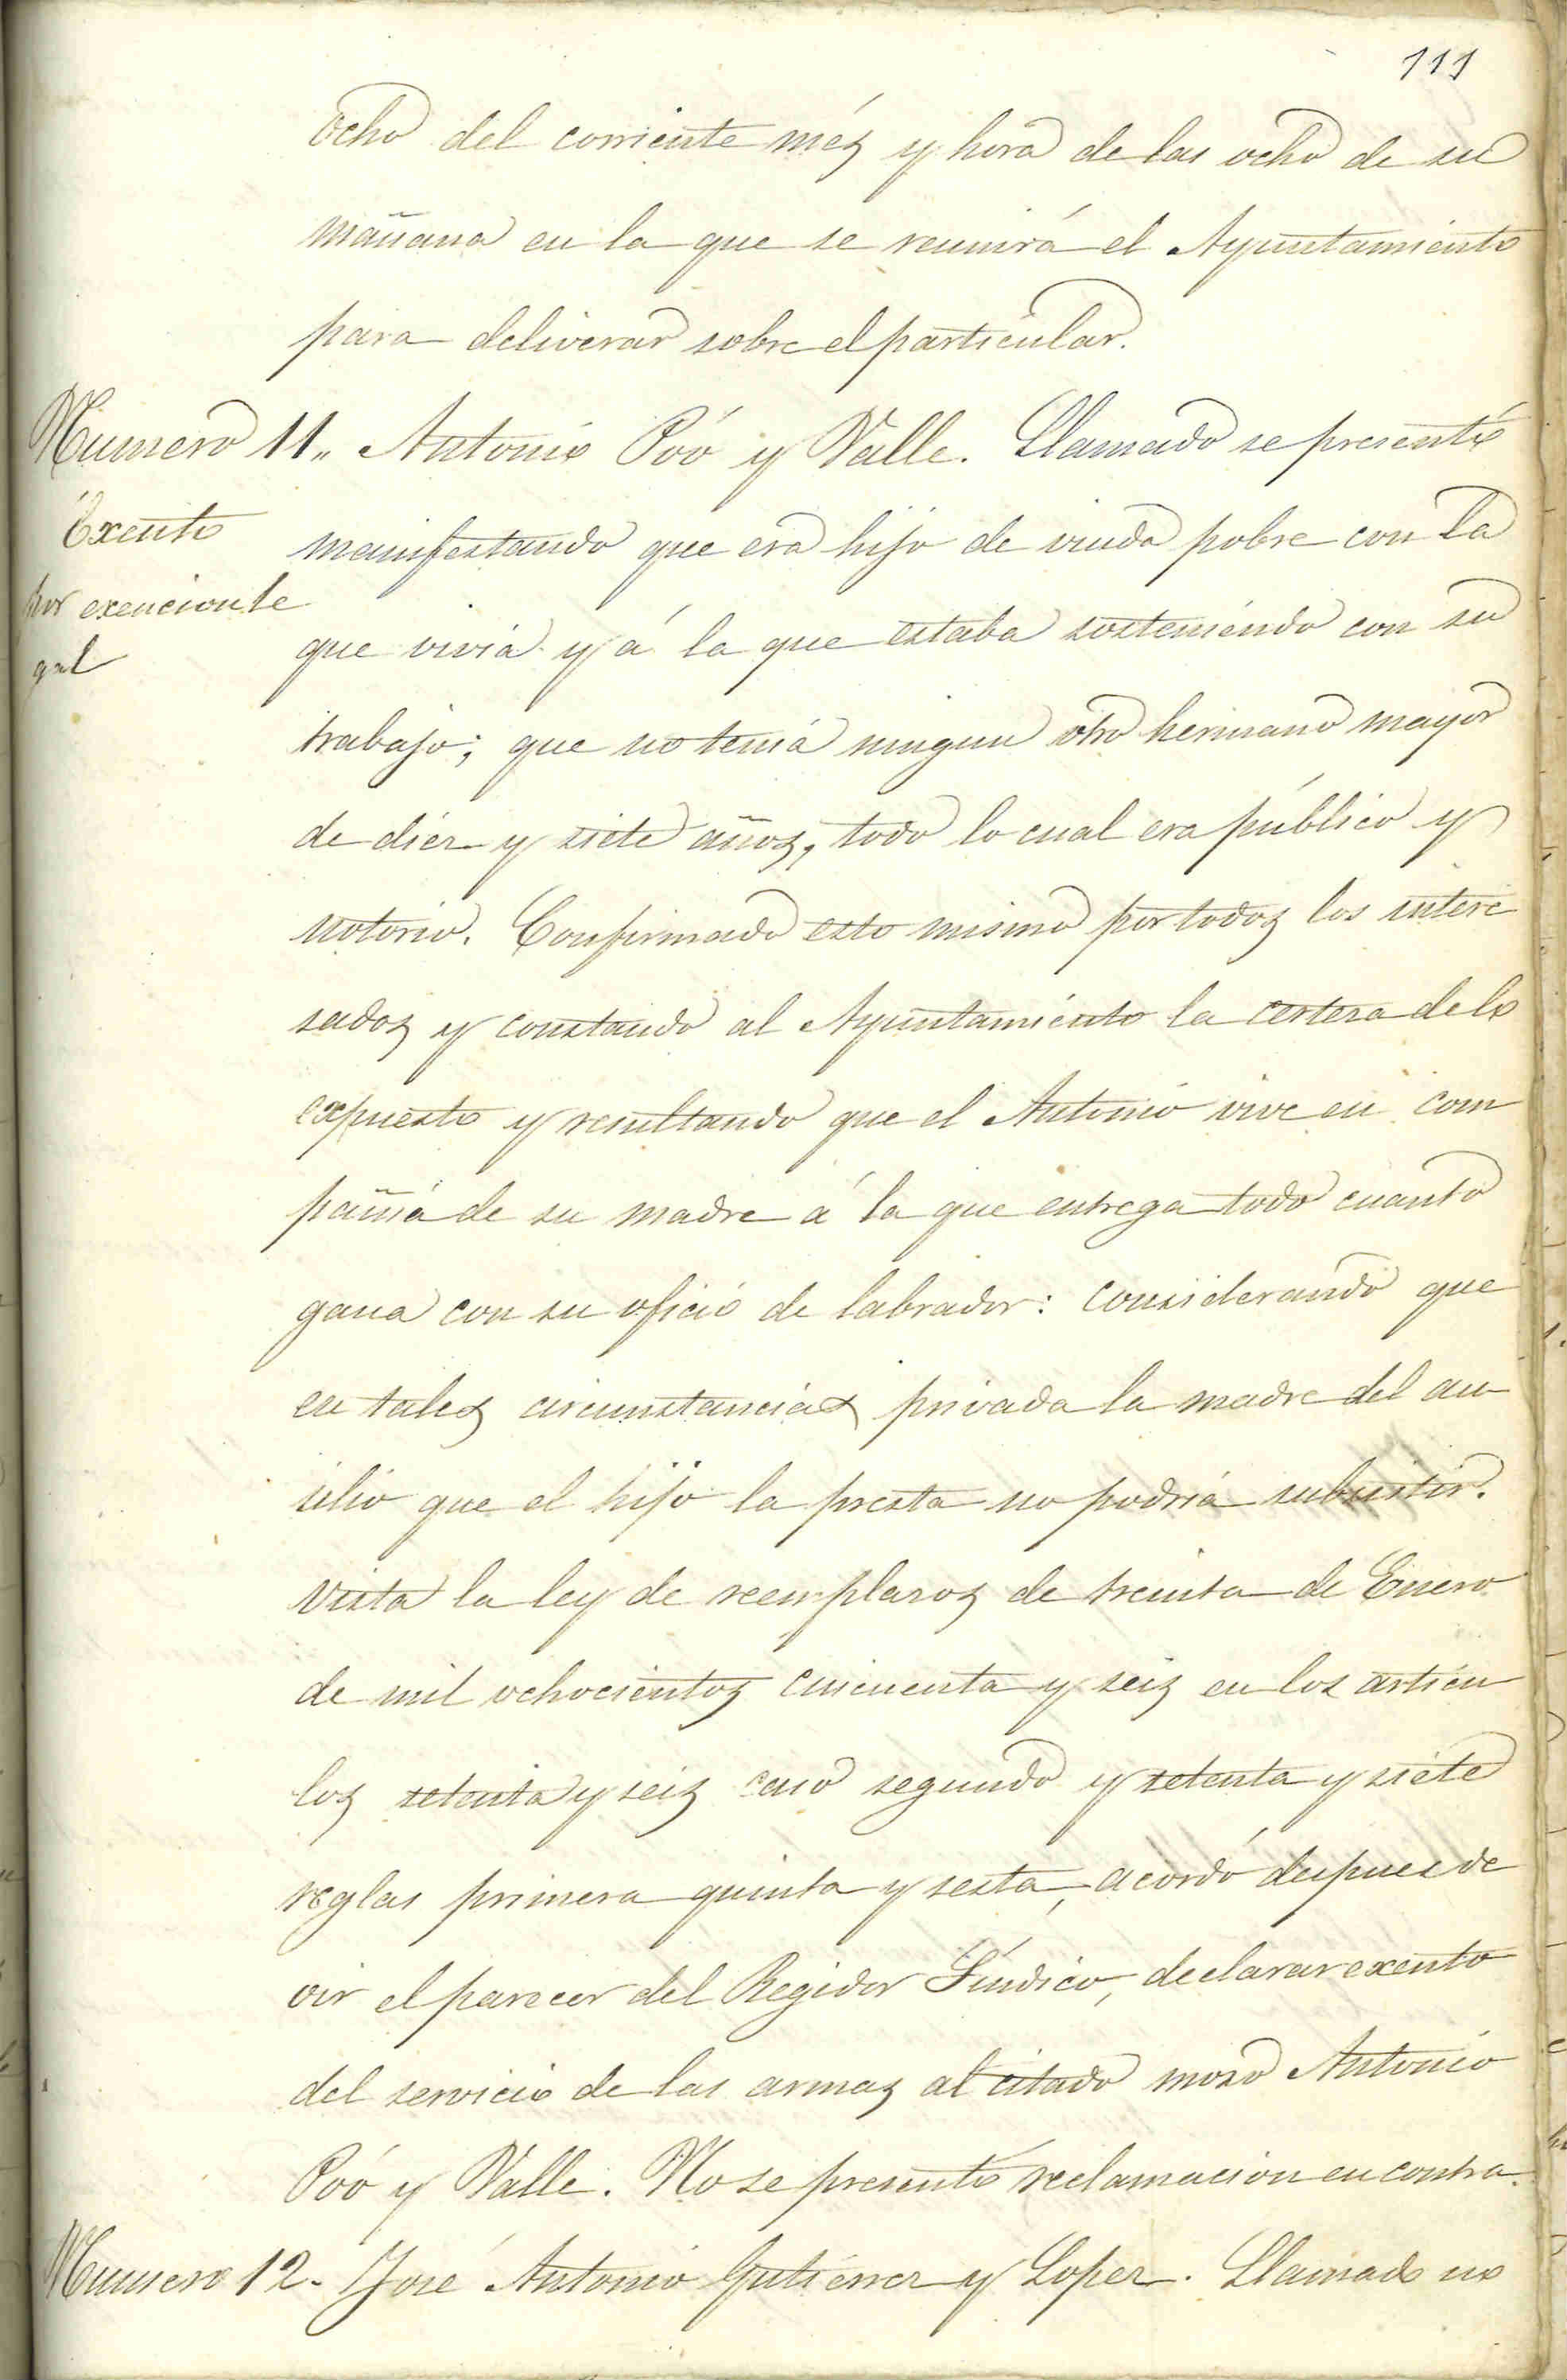 111
ocho del corriente més y hora de las ocho de su
mañana en la que se reunirá el Ayuntamiento
para deliverar sobre el particular.
Numero 11" Antonio Póo y Valle. Llamado se presentó
Exento
por exencion le
gal
manifestando que era hijo de viuda pobre con la
que vivia y á la que estaba sosteniendo con su
trabajo; que no tenia ningun otro hermano mayor
de diez y siete años, todo lo cual era público y
notorio. Confirmado esto mismo por todos los intere
sados y constando al Ayuntamiento la certeza de lo
expuesto y resultando que el Antonio vive en com
pañia de su madre á la que entrega todo cuanto
gana con su oficio de labrador: considerando que
en tales circunstancias privada la madre del au
silio que el hijo la presta no podria subsistir.
Vista la ley de reemplazos de treinta de Enero
de mil ochocientos cincuenta y seis en los articu
los setenta y seis caso segundo y setenta y siete
reglas primera quinta y sesta, acordó despues de
oir el parecer del Regidor Síndico, declarar exento
del servicio de las armas al citado mozo Antonio
Póo y Valle. No se presentó reclamacion en contra.
Numero 12. José Antonio Gutierrez y Lopez. Llamado no